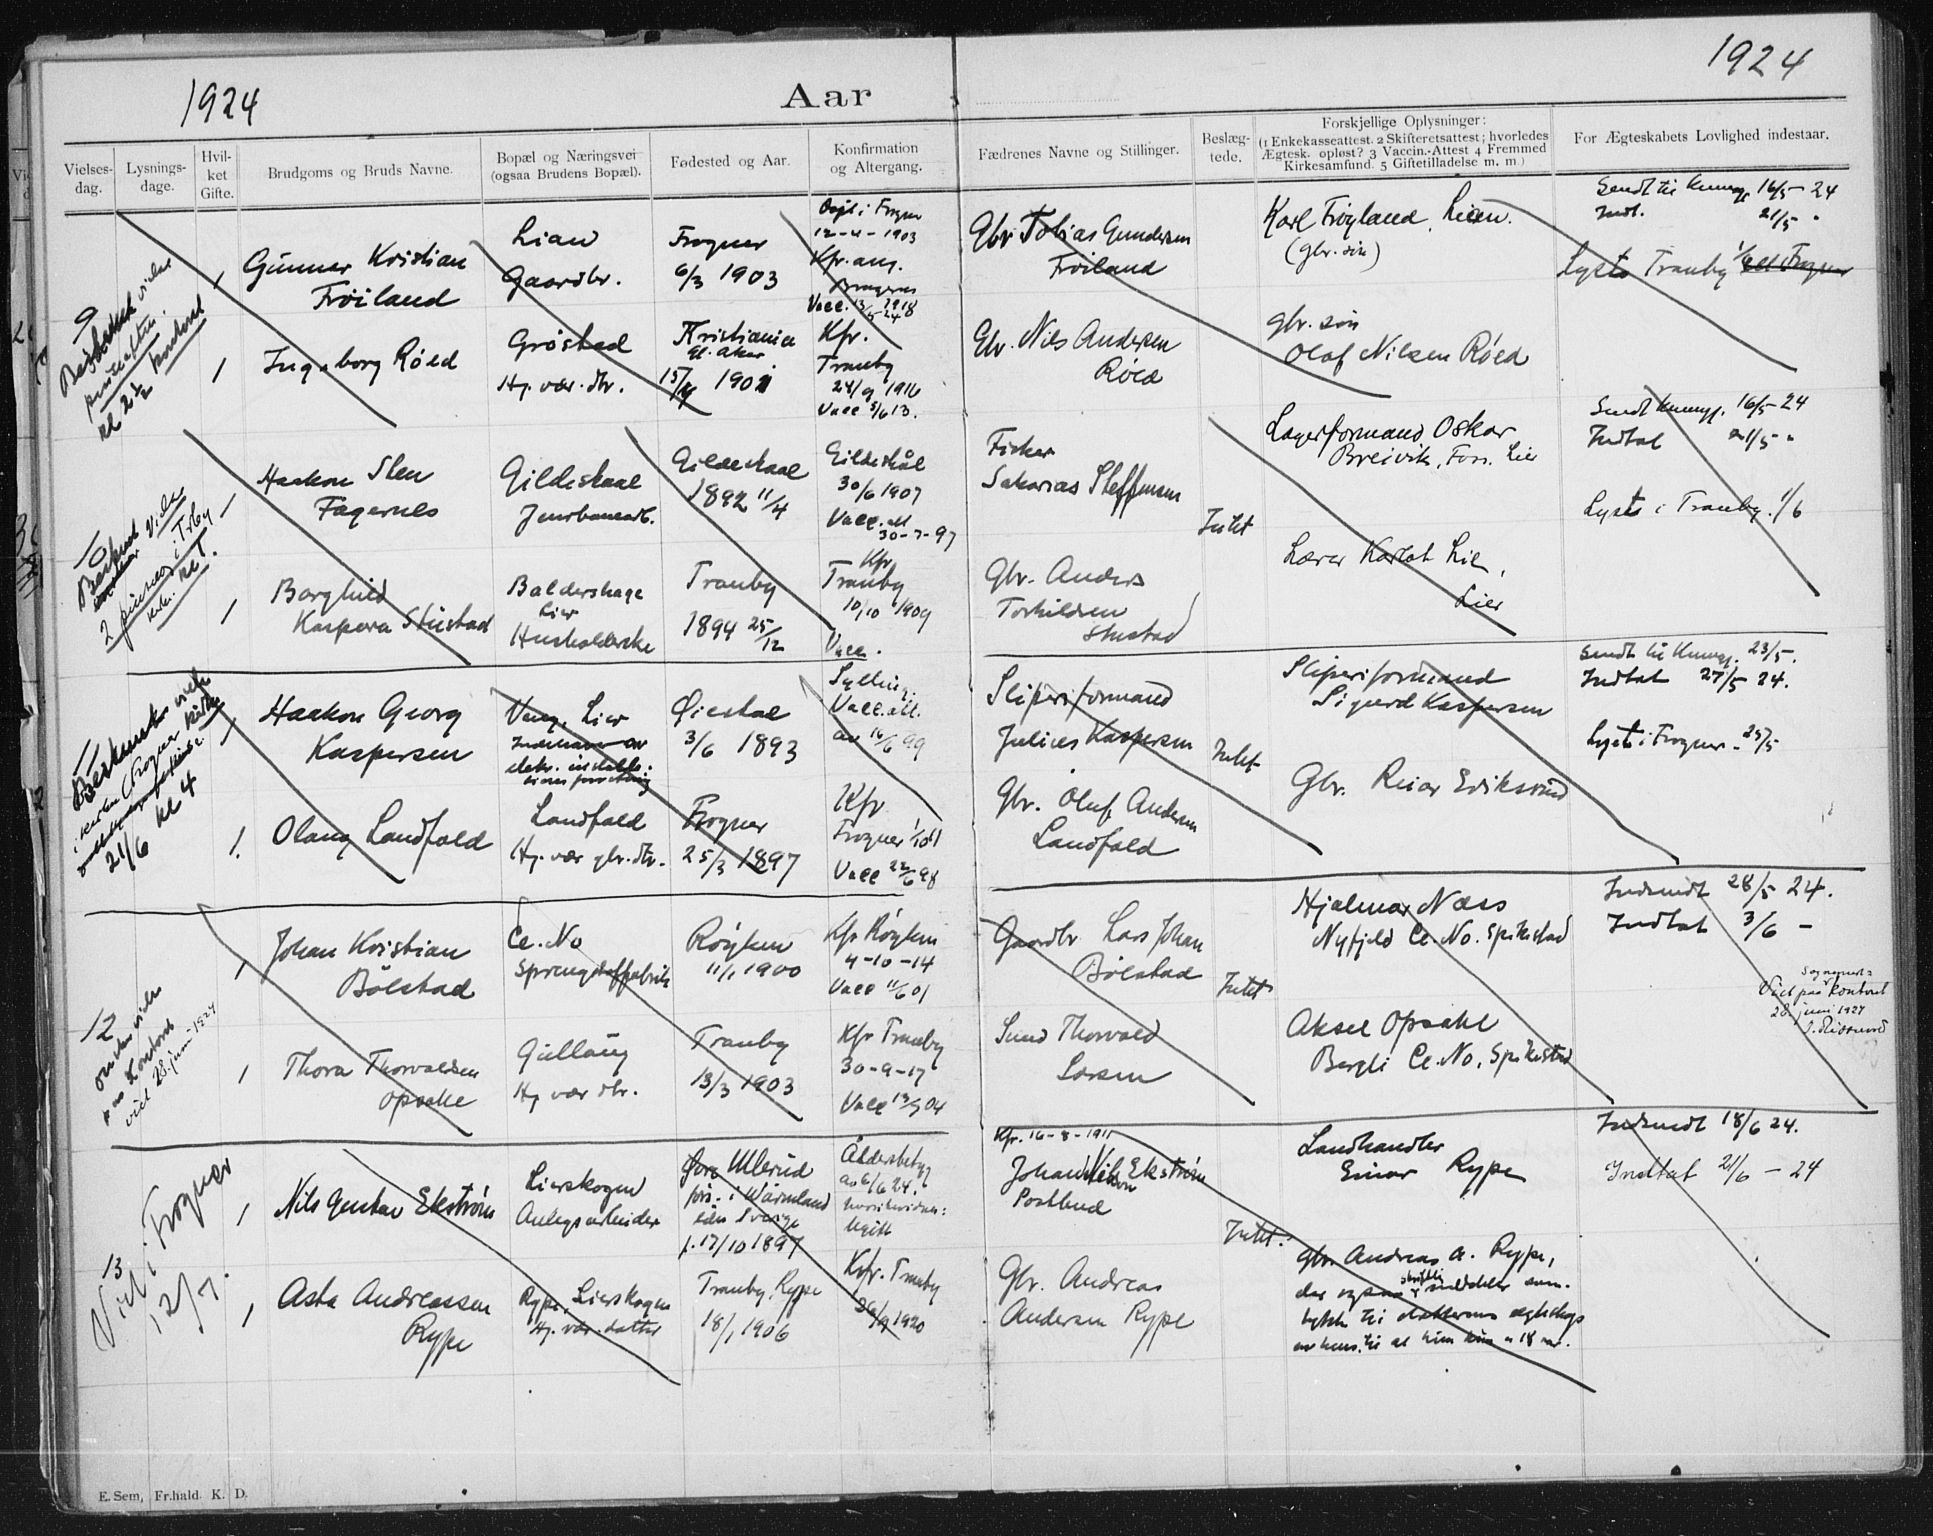 1924
Aar
1924
Vielses-
dag.
Lysnings-
dage.
Hvil-
ket
Gifte.
Brudgoms og Bruds Navne.
Bopæl og Næringsvei
(ogsaa Brudens Bopæl).
Fødested og Aar.
Konfirmation
og Altergang.
Fædrenes Navne og Stillinger.
Beslæg-
tede.
Forskjellige Oplysninger:
(1 Enkekasseattest. 2 Skifteretsattest; hvorledes
Ægtesk. opløst? 3 Vaccin.-Attest 4 Fremmed
Kirkesamfund. 5 Giftetilladelse m. m.)
For Ægteskabets Lovlighed indestaar.
9
kl 2½ kontoret
1
Gunnar Kristian
Fróiland
Lian
Gaardbr.
Frogner
6/3 1903
Døpt i Frogner
12-4-1903
Kfr. ang.
Bragernes
1918
Gbr Tobias Gundersen
Fróiland
Karl Frøyland, Lien.
(gbr. søn)
Sendt til kunng. 16/5-24
Indt. 21/5 "
Lystes Tranby 1/6
1
Ingeborg Róed
Gróstad
Hj. vær. dtr.
Kristiania
Gl. Aker
15/4 1901
Kfr.
Tranby
24/9 1916
Vacc 5/6 13.
Gbr. Nils Andersen
Róed
gbr. søn
Olaf Nilsen Róed
10
1
Haakon Sten
Fagernes
Gildeskaal
Jernbanearb.
Gildeskaal
1892 11/4
Gildeskål
30/6 1907
Vacc. att
30-7-97
Fisker
Sakarias Steffensen
Intet
Lagerformand Oskar
Breivik, Foss. Lier
Sendt kunngj. 16/5-24
Indtat 21/5 "
Lystes i Tranby. 1/6
1
Borghild
Kaspara Stustad
Baldershage
Lier
Husholderske
Tranby
1894 25/12
Kfr
Tranby
10/10 1909
Vacc.
Gbr. Anders
Torkildsen
Stustad
Lærer Karlot Lie,
Lier
11
21/6 kl 4
1
Haakon Georg
Kaspersen
Lier
Øiestad
3/6 1893
Sylling.
Vacc. att.
av 16/6 99
Sliperiformand
Julius Kaspersen
Intet
Sliperiformand
Sigurd Kaspersen
Sendt til kunng. 23/5.
Indtat 27/5 24.
Lystes i Frogner - 25/5
1.
Olaug Landfald
Landfald
Hj. vær gbr. dtr.
Frogner
25/3 1897
Kfr
Frogner
Vacc 22/6 98
Gbr. Oluf Andersen
Landfald
Gbr. Reier Eriksrud
12
kontoret
viet 28. juni-1924
1
Johan Kristian
Bólstad
Ce. No
Sprengstoffabrik
Róyken
11/1 1900
Kfr Róyken
4-10-14
Vacc 11/6 01
Gaardbr Lars Johan
Bólstad
Intet
Hjalmar Næss
Nyfjeld Ce. No. Spikestad
Indsendt 28/5 24.
Indtat 3/6 -
Viet paa kontoret
28. juni 1924
1
Thora Thorvaldsen
Opsahl
Gullaug
Hj. vær dtr.
Tranby
13/3 1903
Kfr Tranby
30-9-17
Smed Thorvald
Larsen
Aksel Opsahl
Bergli Ce. No. Spikestad
13
Viet i Frogner
12/7.
1
Nils Gustav Ekström
Lierskogen
Anlegsarbeider
i Wärmland
Sverige
f. 17/10 1897
av 6/6 24.
Kfr. 16-8-1911
Ekström
Postbud
Intet.
Landhandler
Einar Rype
Indsendt 18/6 24.
Indtat 21/6 - 24
1
Asta Andreassen
Rype
Rype, Lierskogen
Hj. vær. datter
Tranby, Rype
18/1 1906
Kfr. Tranby
26/9 1920
Gbr. Andreas
Andersen Rype
Gbr. Andreas A. Rype,
E. Sem, Fr.hald. K. D.